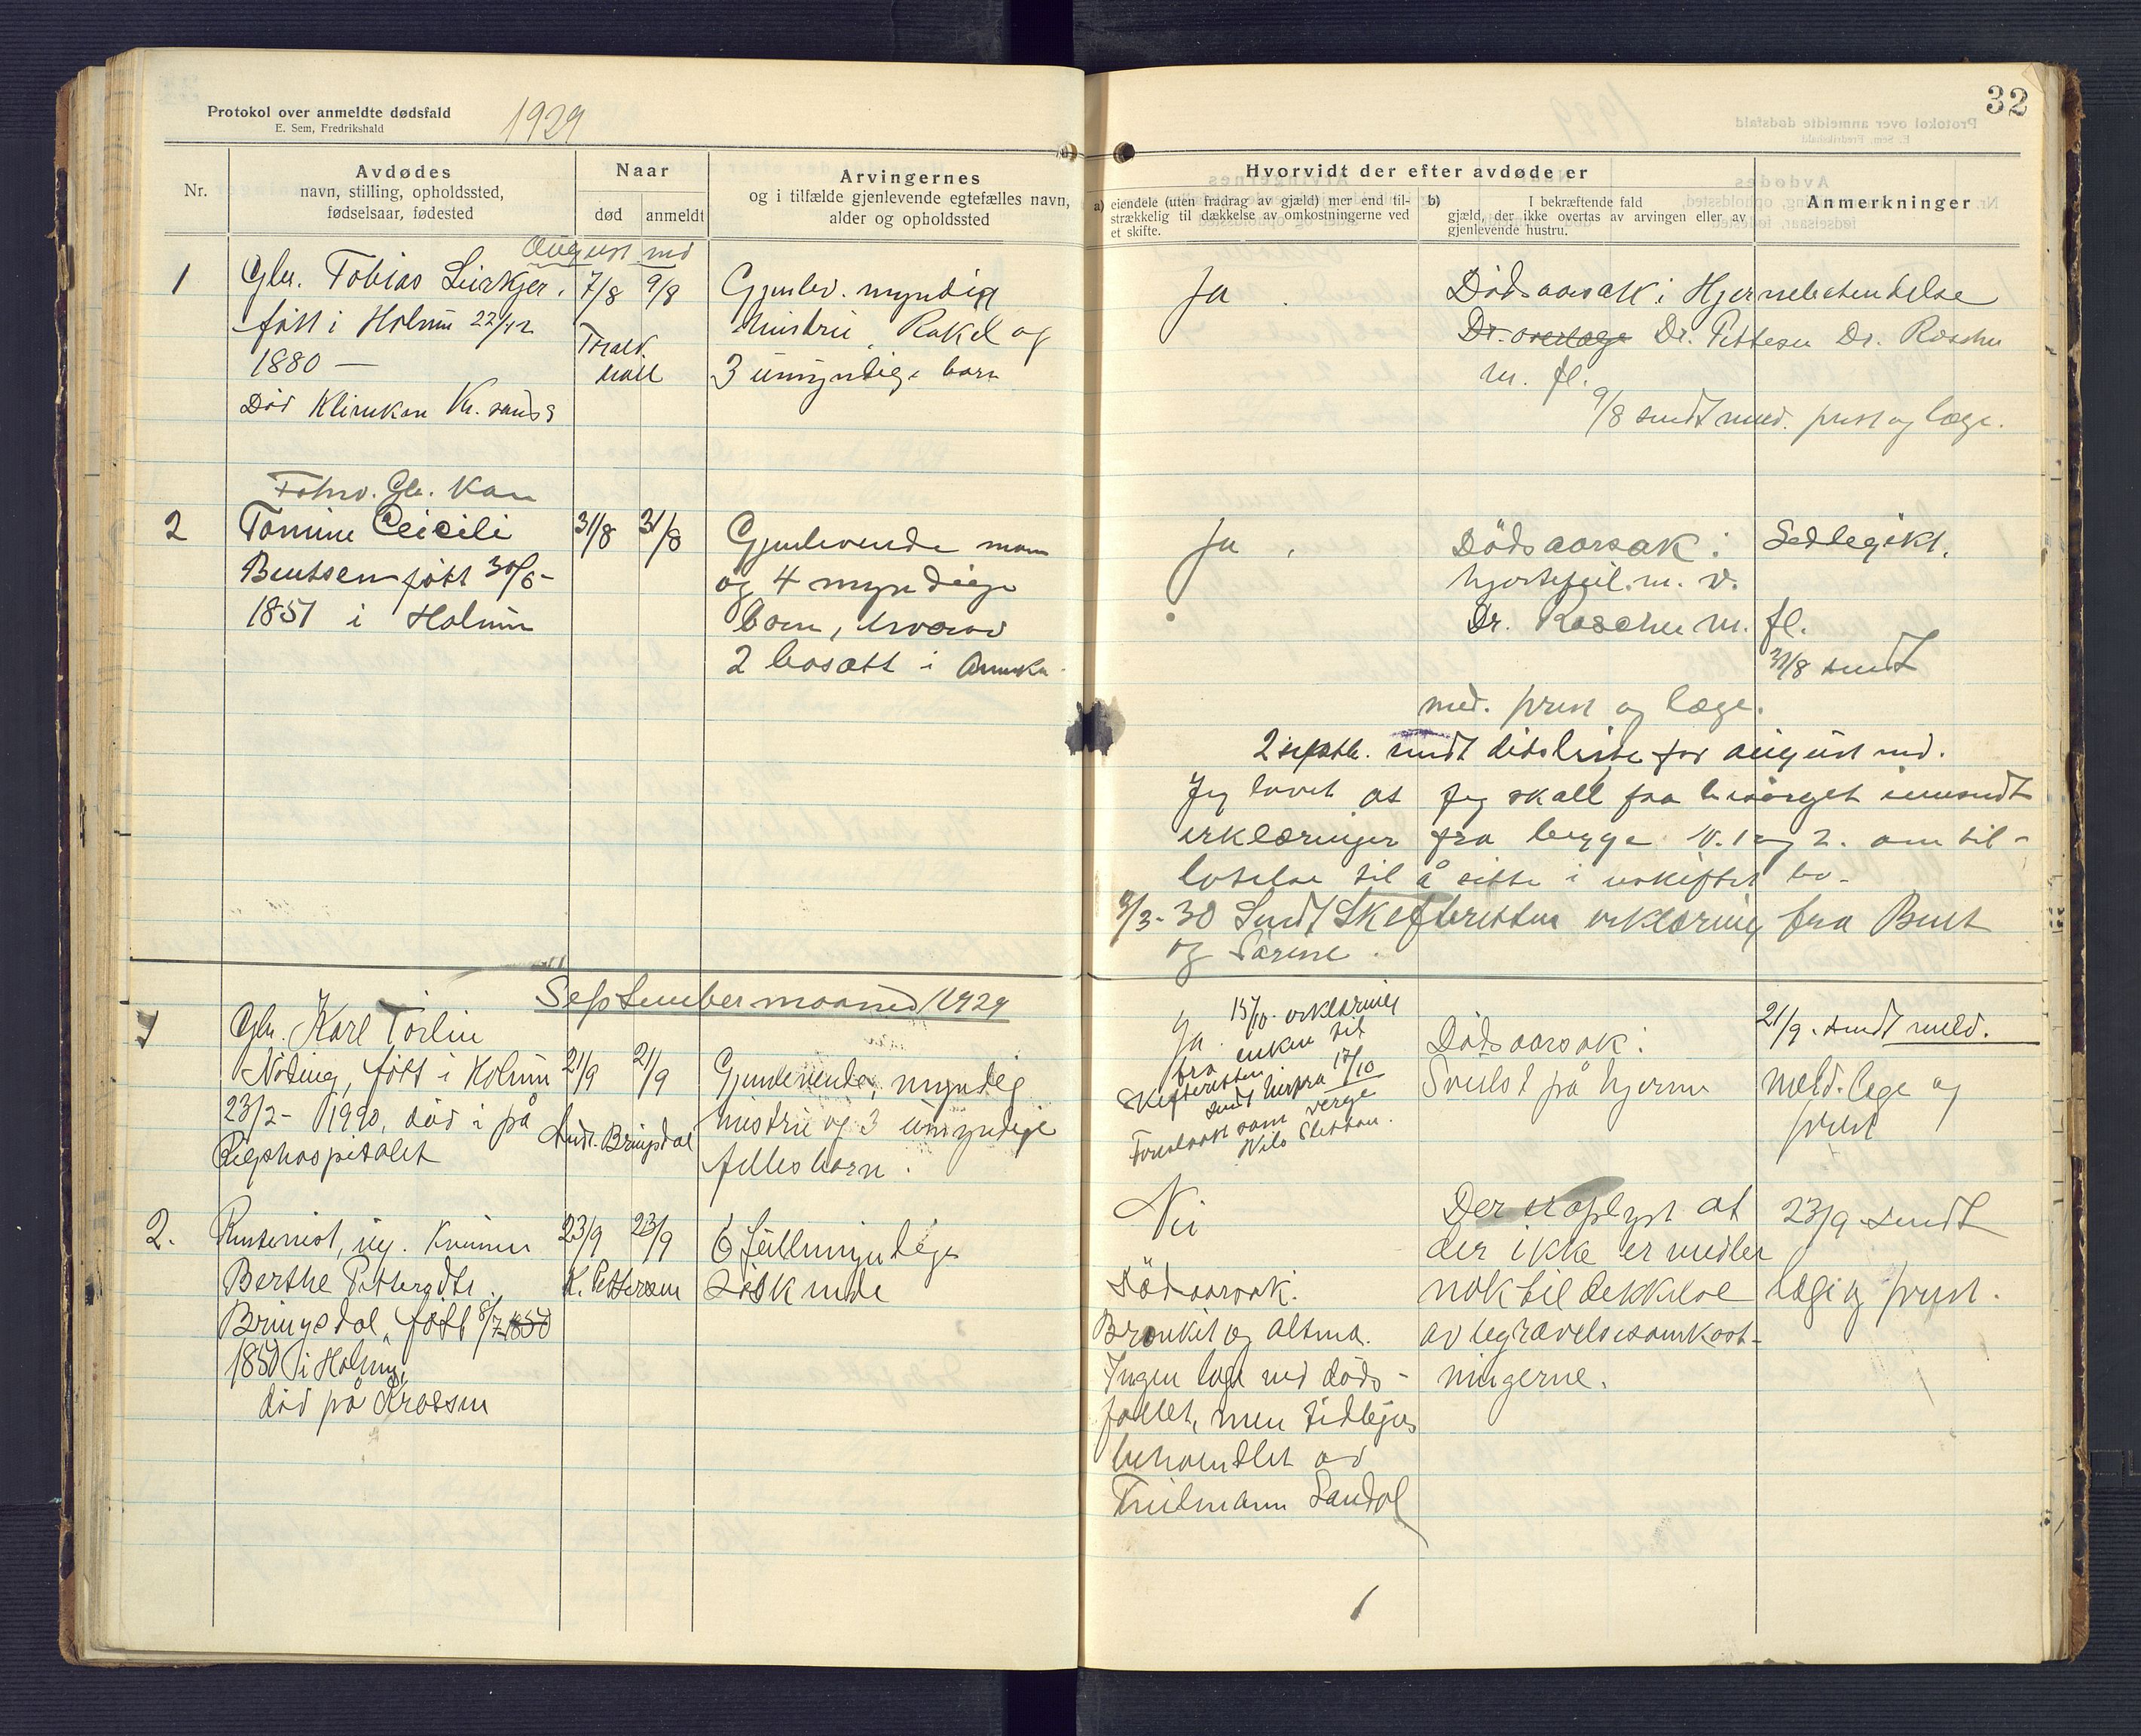 Protokol over anmeldte dødsfald
E. Sem, Fredrikshald
1929
Nr.
Avdødes
navn, stilling, opholdssted,
fødselsaar, fødested
Naar
død
anmeldt
Arvingernes
og i tilfælde gjenlevende egtefælles navn,
alder og opholdssted
August md
1
Gbr. Tobias Leirkjer.
født i Holum 22/12
1880 —
Død Klinikan Kr. sands
7/8 9/8
Gjenlev. myndig
hustru, Rakel og
3 umyndige barn
Forhv. Gb. Kone
2
Tomine Ceicili
Bentsen født 30/6-
1851 i Holum
31/8 31/8
Gjenlevende mann
og 4 myndige
barn, hvorav
2 bosatt i Amerika
September maaned 1929
1
Gbr. Karl Torlin
Nöding, født i Holum
23/2- 1990, död i på
Rigshospitalet
21/9 21/9
Andr. Bringsdal
Gjenlevende, myndig
hustru og 3 umyndige
fellesbarn.
2.
Rentenist, ug. Kvinne
Berthe Pettersdtr.
Bringsdal, født 8/7 1850
1850 i Holum,
död på Krossen
23/9 23/9
K. Pettersen
6 fullmyndige
Söskende
32
Hvorvidt der efter avdøde er
a) eiendele (uten fradrag av gjæld) mer end til-
strækkelig til dækkelse av omkostningerne ved
et skifte.
b) I bekræftende fald
gjæld, der ikke overtas av arvingen eller av
gjenlevende hustru.
Anmerkninger
Ja.
Dödsaarsak: Hjernebetendelse
Dr. overlæge Dr. Pettersen Dr. Roscher
m. fl.
9/8 sendt med. prest og læge.
Ja,
Dödsaarsak: Ledlegikt,
hjertefeil. m. v.
Dr. Roscher m. fl.
31/8 sendt
med. prest og læge.
2 septb. sendt dödsliste for august md.
Jeg lovet at jeg skall faa besörget innsendt
erklæringer fra begge N. 1 og 2. om til-
latelse til å sitte i uskiftet bo-
3/3- 30 Sendt Skifteretten erklæring fra Bent
og Sarine.
Ja. 15/10. erklæring
fra enken til
Skifteretten
sendt herfra 17/10
Foreslaat som verge
Nils Sletten.
Dödsaarsak:
Svulst på hjerne
21/9. sendt meld.
meld. lege og
prest
Nei
Dödsaarsak:
Bronkit og altma.
Ingen lege ved döds-
fallet, men tidligere
behandlet av
Trulmann Sandal
Der er oplyst at
der ikke er midler
nok til dekkelse
av begravelsesomkost-
ningerne.
23/9 sendt
læge og prest.
1